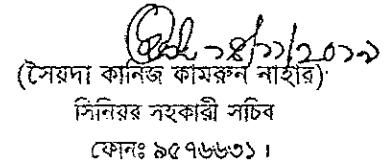 ১৪/১১/২০১৯
(সৈয়দা কানিজ কামরুন নাহার)
সিনিয়র সহকারী সচিব
ফোনঃ ৯৫৭৬৬৩১।